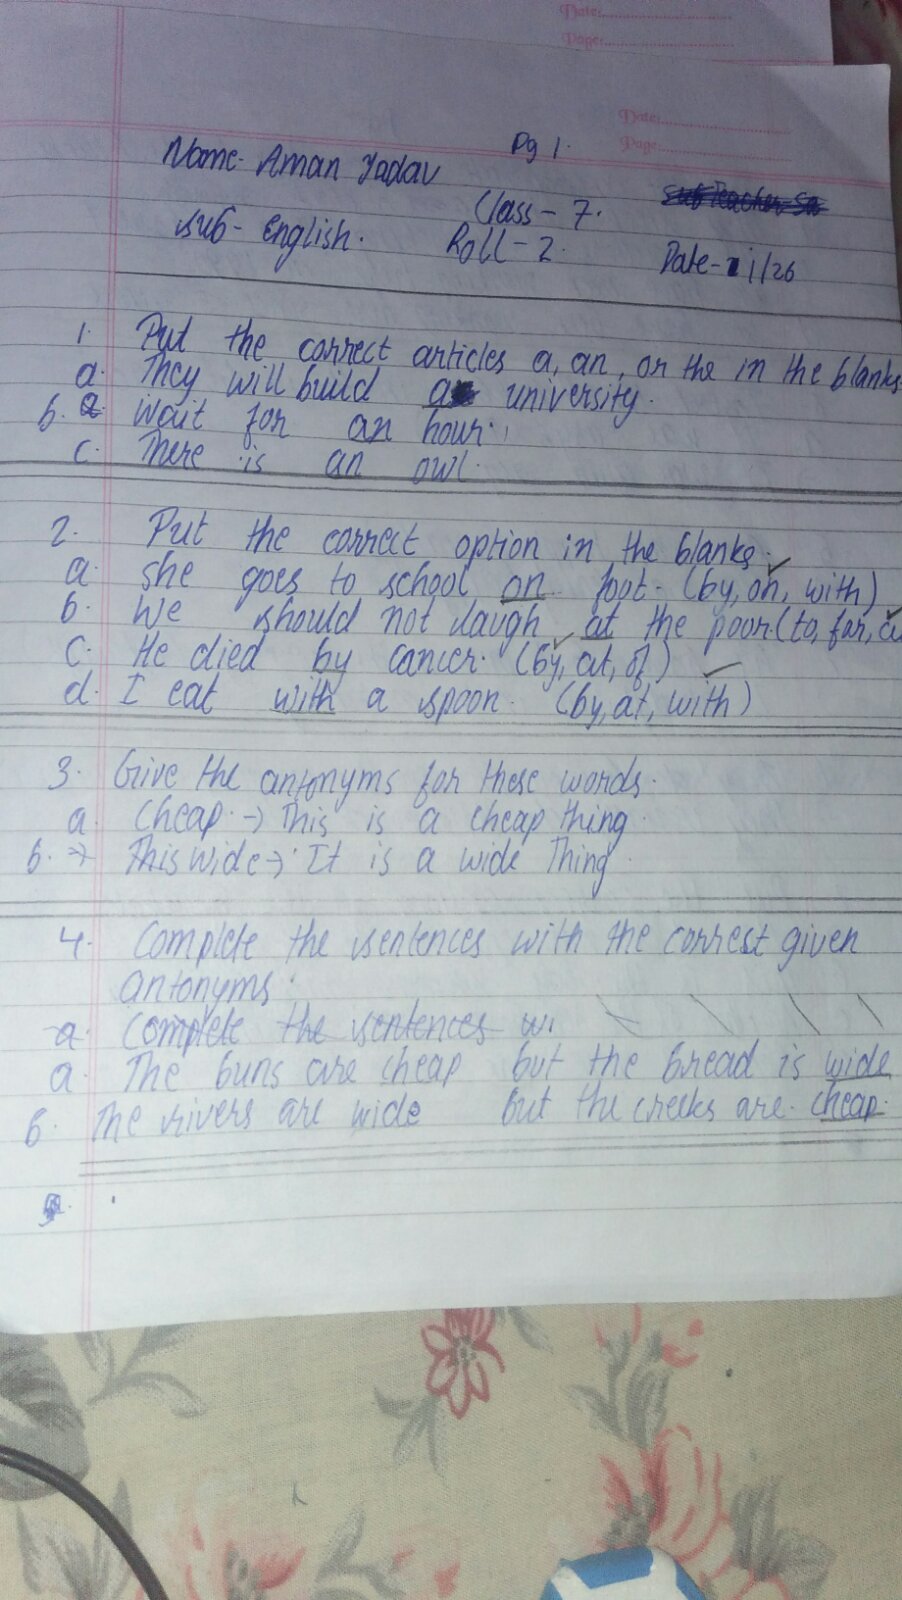 Date:
Page:
Date:
Page:
Pg 1.
Name- Aman Yadav
Class- 7.
Sub- English.
Roll- 2.
Date- 1/26
1. Put the correct articles a, an, or the in the blanks.
a. They will build a university.
b. Wait for an hour.
c. There is an owl.
2. Put the correct option in the blanks.
a. she goes to school on foot. (by, on, with)
b. We should not laugh at the poor (to, for,
C. He died by cancer. (by, at, of)
d. I eat with a spoon. (by, at, with)
3. Give the antonyms for these words.
a. Cheap. → This is a cheap thing.
b. → This wide → It is a wide Thing.
4. Complete the sentences with the correst given
antonyms.
a. Complete the sentences wi
a. The buns are cheap but the bread is wide
b. The rivers are wide but the creeks are. cheap.